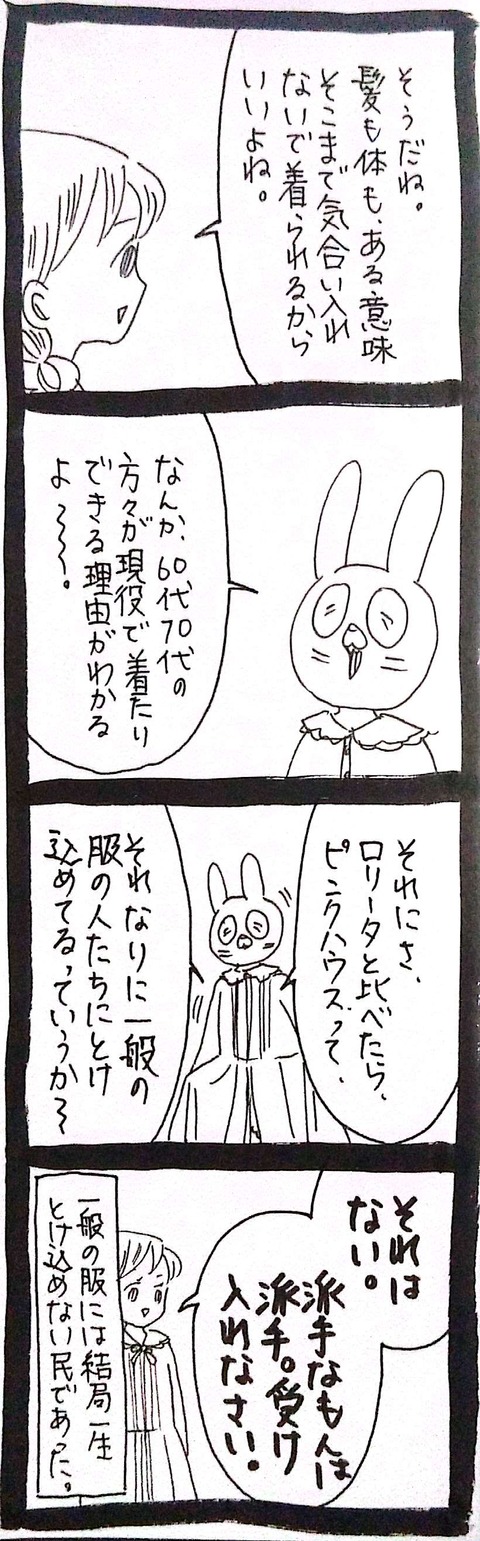 そうだね。
髪も体も、ある意味
そこまで気合い入れ
ないで着られるから
いいよね。
なんか、60代70代の
方々が現役で着たり
できる理由がわかる
よ〜〜。
それにさ、
ロリータと比べたら、
ピンクハウスって、
それなりに一般の
服の人たちにとけ
込めてるっていうか〜
それは
ない。
派手なもんは
派手。受け
入れなさい。
一般の服には結局一生
とけ込めない民であった。